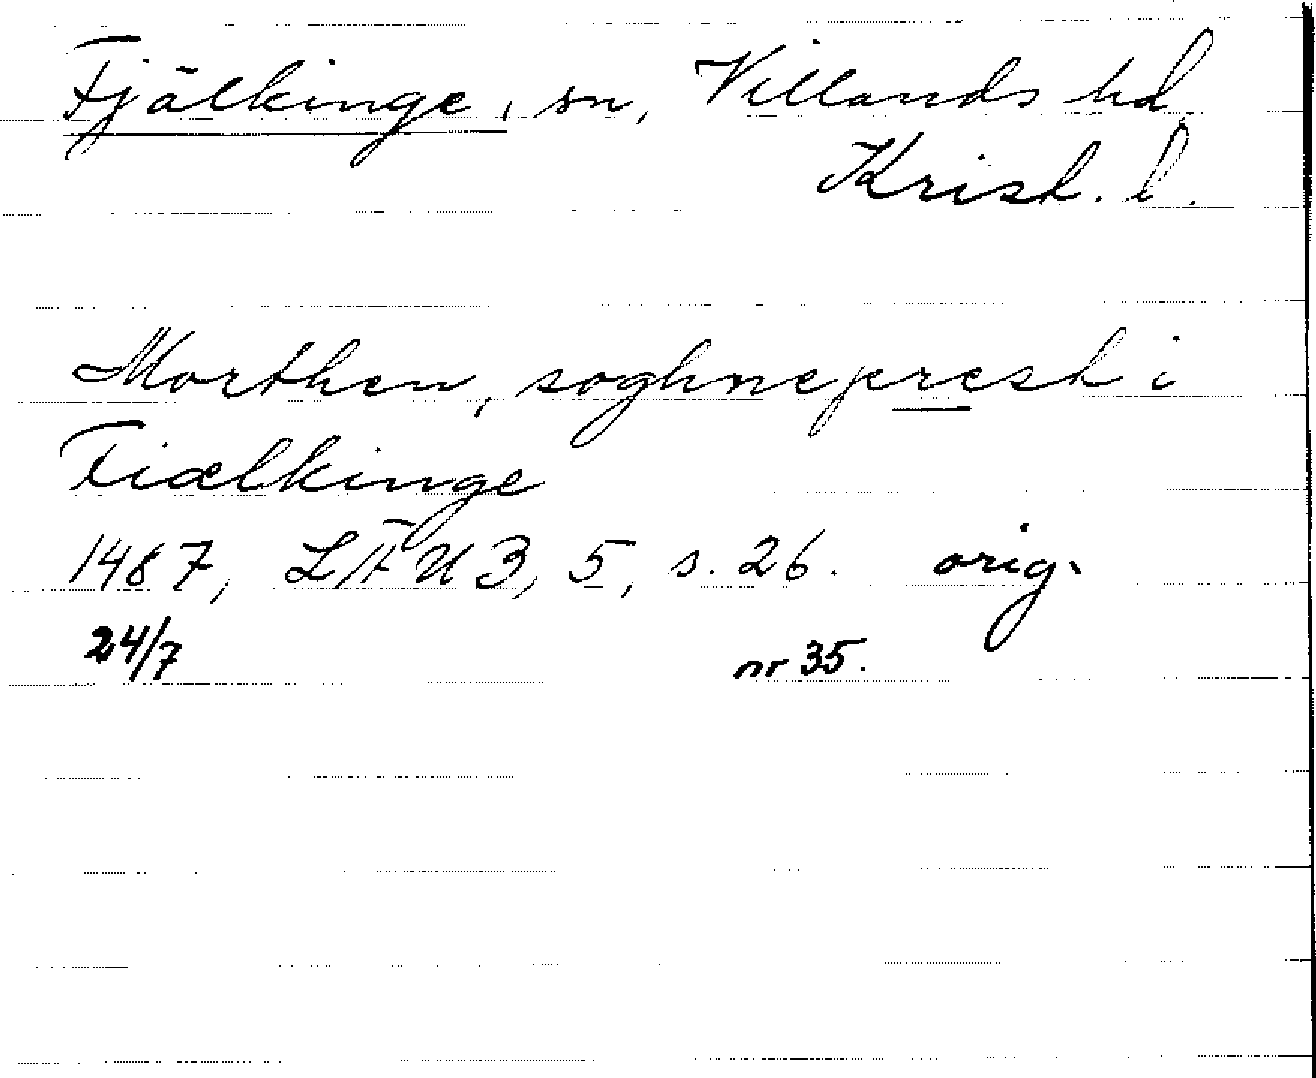 Fjälkinge, sn, Villands hd
Krist. l.
Morthen, soghneprest i
Fiælkinge
1487, LÄU 3, 5, s. 26. orig.
24/7 nr 35.